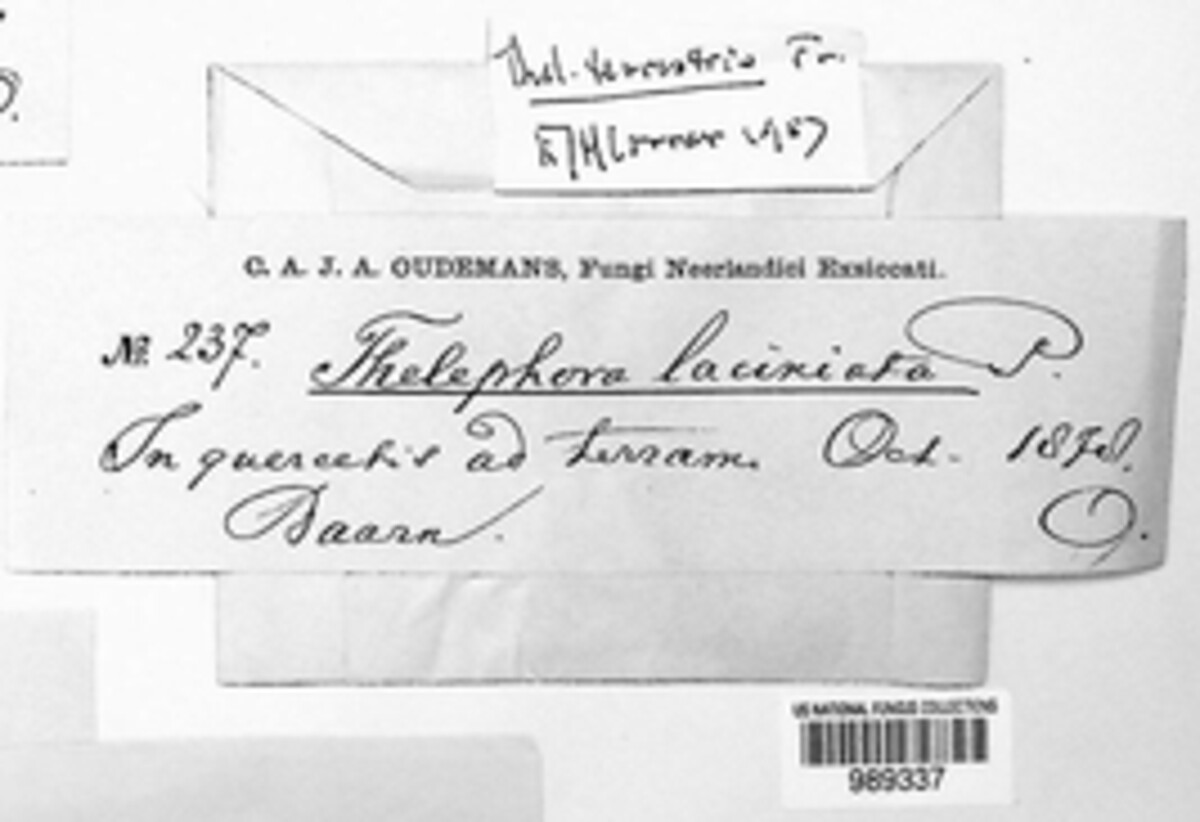 Thel. terrestris Fr.
EJH Corner 1967
C. A. J. A. OUDEMANS, Fungi Neerlandici Exsiccati.
№ 237. Thelephora laciniata P.
In quercetis ad terram. Oct. 1878.
Baarn. O.
US NATIONAL FUNGUS COLLECTIONS
989337